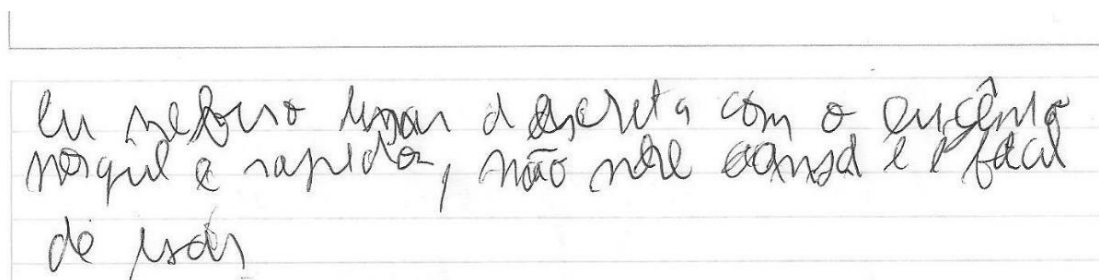 eu prefiro usar a escrita com o
porque é rapido, não me cansa e é facil
de usar